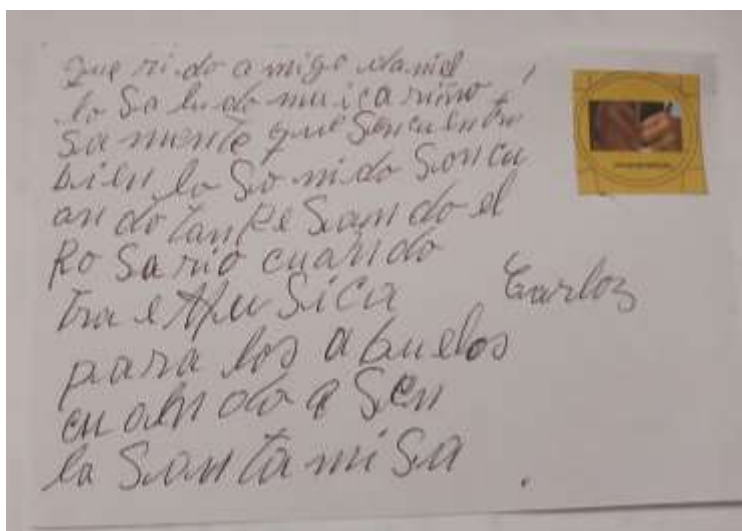 que ri do a migo daniel
lo Sa lu do mui cariño
Sa mente que Sencu entre
bien lo So ni do Son cu
an do tan Re San do el
Ro Sa rio cuando
tra e Mu Sica
Carlos
para los abuelos
cu an do a Sen
la San ta mi Sa